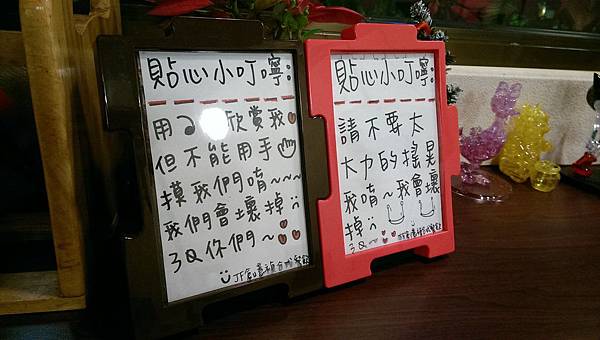 貼心小叮嚀:
用 欣賞我
但不能用手
摸我們唷~~~
我們會壞掉
3Q你們~
貼心小叮嚀:
請不要太
大力的搖晃
我唷~我會壞
掉
3Q~